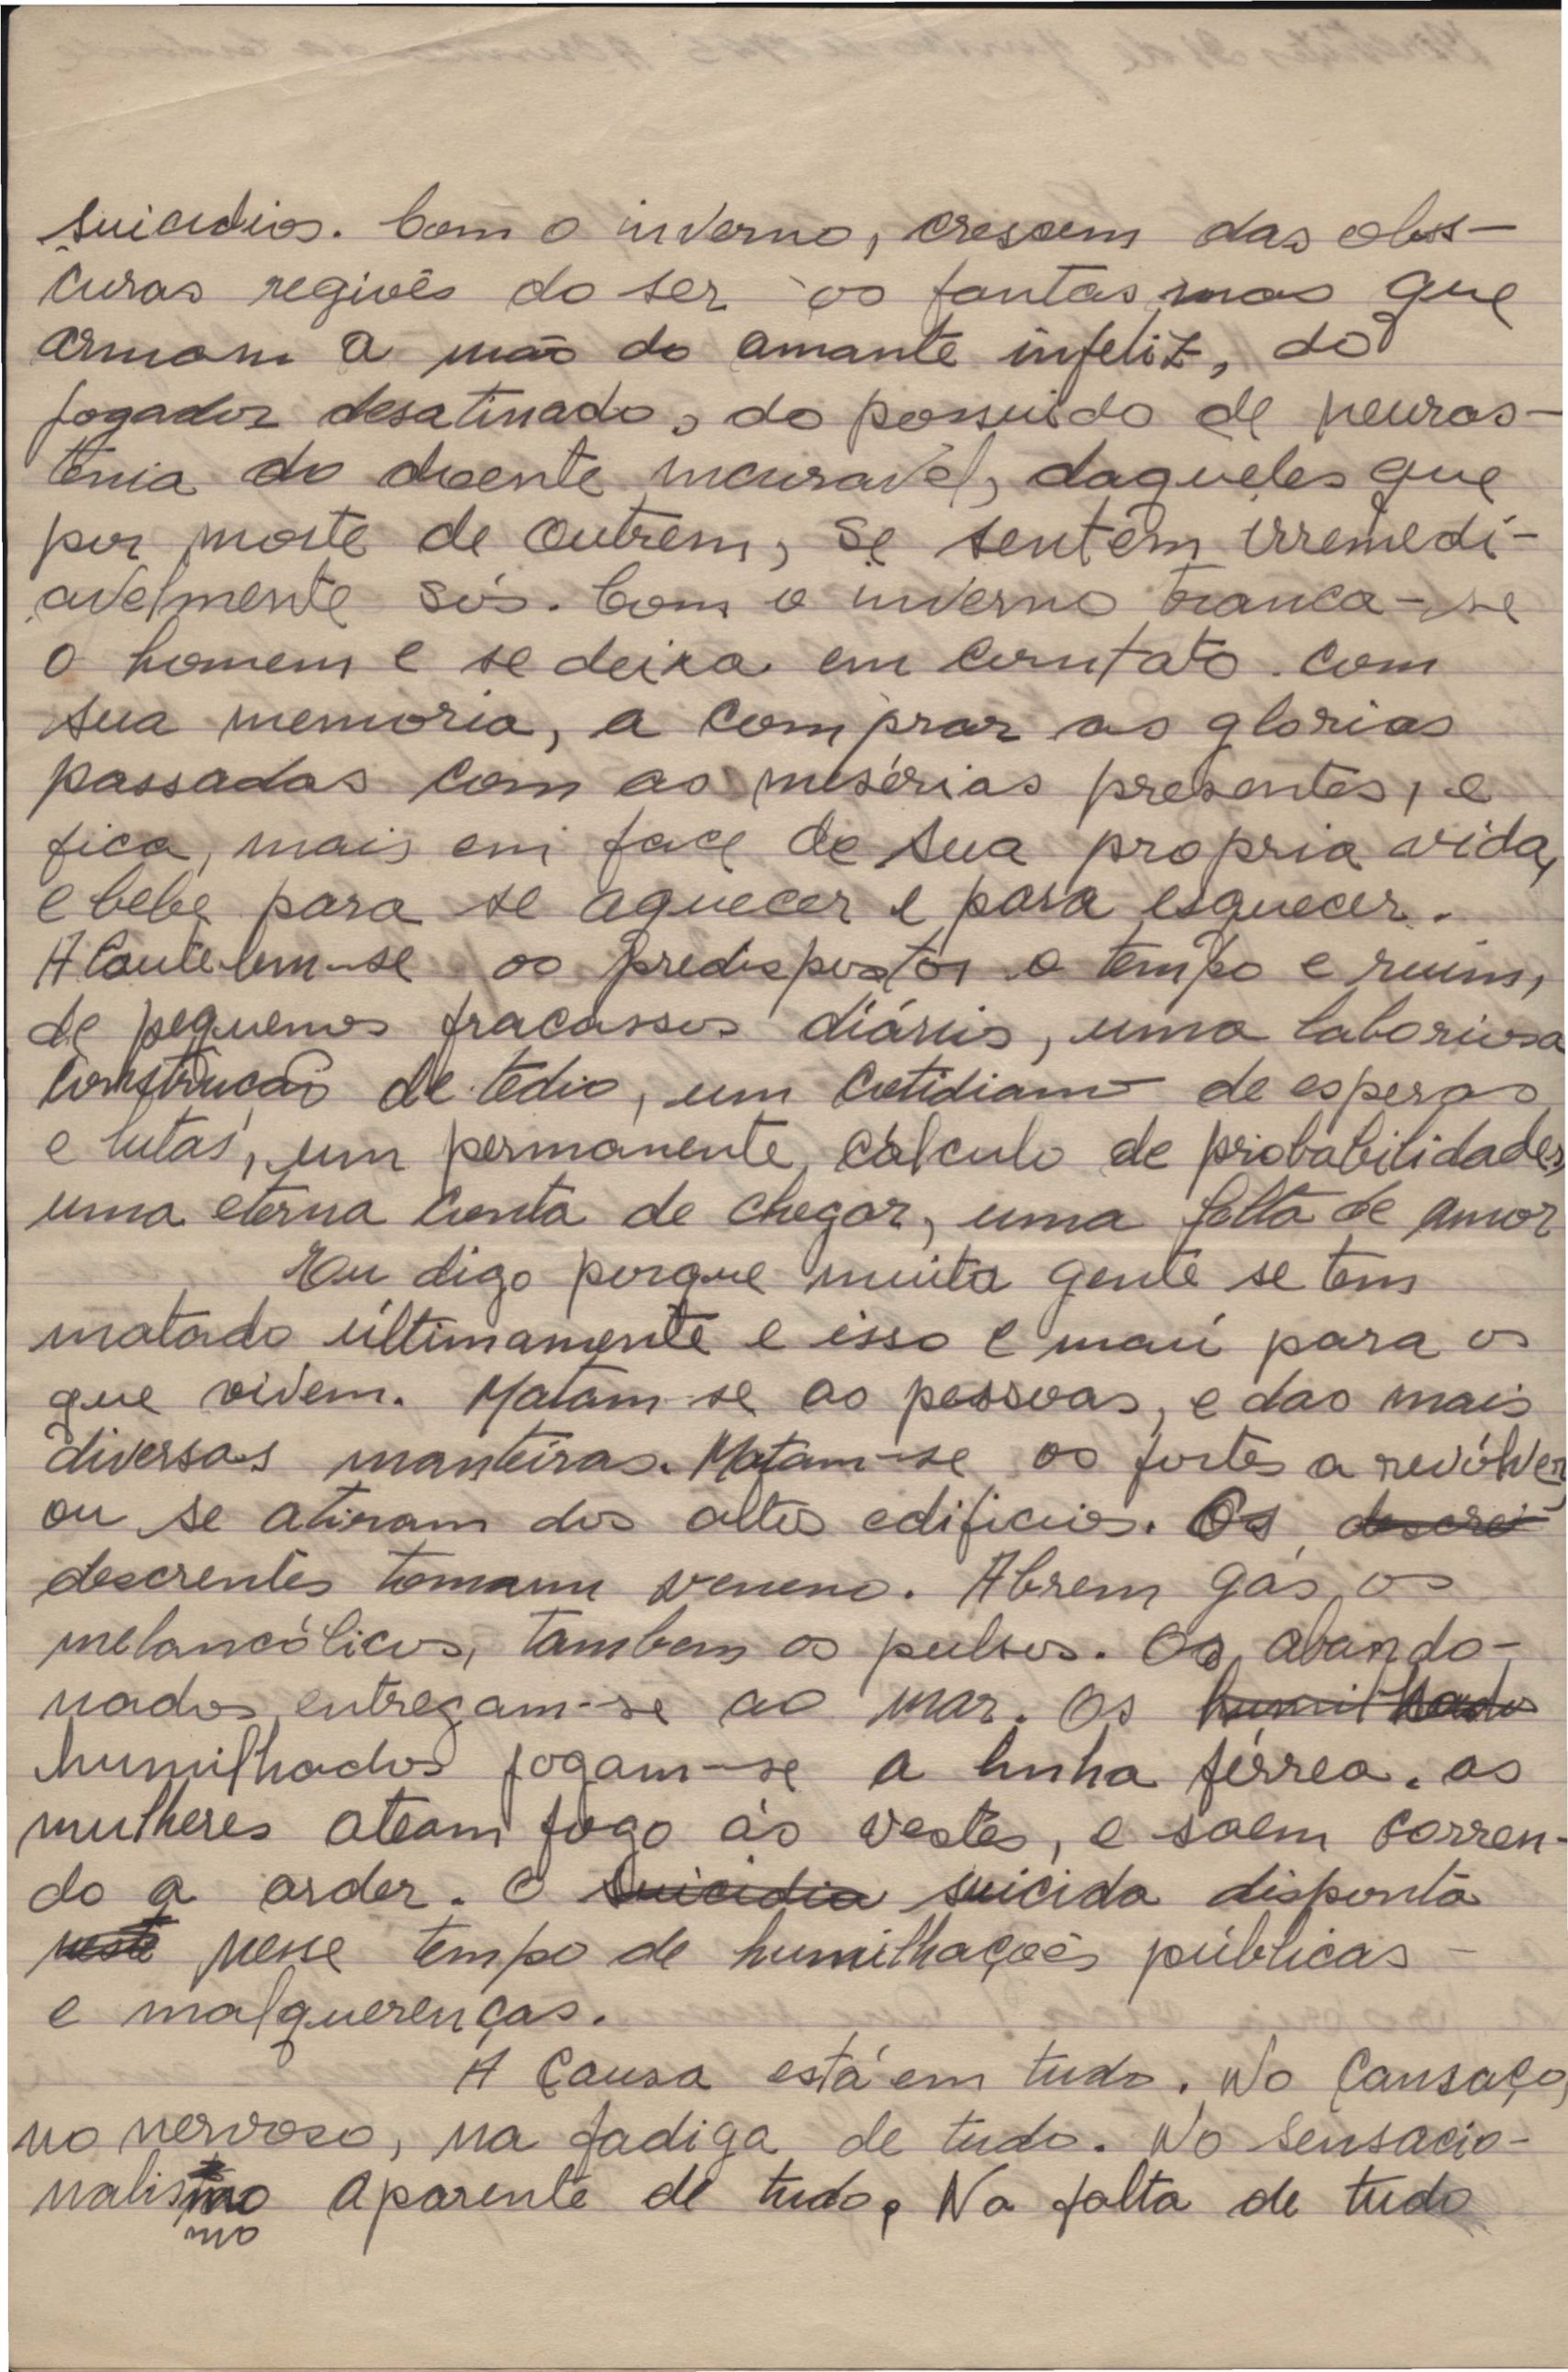 suicidios. Com o inverno, crescem das obs-
curas regiões do ser os fantasmas que
armam a mão do amante infeliz, do
jogador desatinado, do possuido de neuras-
tenia do doente incuravel, daqueles que
por morte de outrem, se sentem irremedi-
avelmente sós. Com o inverno tranca-se
o homem e se deixa em contato com
sua memória, a comprar as glorias
passadas com as misérias presentes, e
fica, mais em face de sua propria vida,
e bebe para se aquecer e para esquecer.
Acautelem-se os predispostos o tempo e ruim,
de pequenos fracassos diários, uma laboriosa
construcão de tedio, um cotidiano de esperas
e lutas, um permanente cálculo de probabilidades,
uma eterna conta de chegar, uma falta de amor
Eu digo porque muita gente se tem
matado últimamente e isso e mau para os
que vivem. Matam-se as pessoas, e das mais
diversas manteiras. Matam-se os fortes a revólver,
ou se atiram dos altos edificios. Os descrei
descrentes tomam veneno. Abrem gás os
melancólicos, tambem os pulsos. Os abando-
nados entregam-se ao mar. Os humilhados
humilhados jogam-se a linha férrea. as
mulheres ateam fogo ás vestes, e saem corren-
do a arder. O suicidia suicida disponta
neste nesse tempo de humilhaçoẽs públicas
e malquerenças.
A Causa está em tudo. No Cansaço,
no nervoso, na fadiga de tudo. No sensacio-
nalismo aparente de tudo. Na falta de tudo
mo